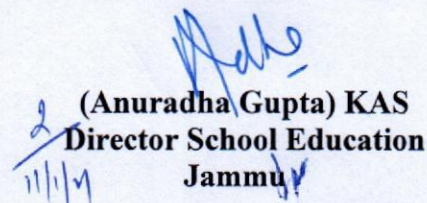 (Anuradha Gupta) KAS
Director School Education
Jammu
2